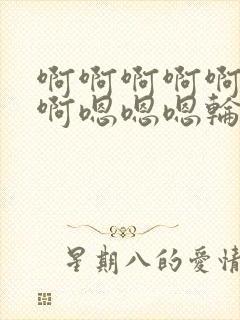 啊啊啊啊啊
啊嗯嗯嗯輪
星期八的愛情